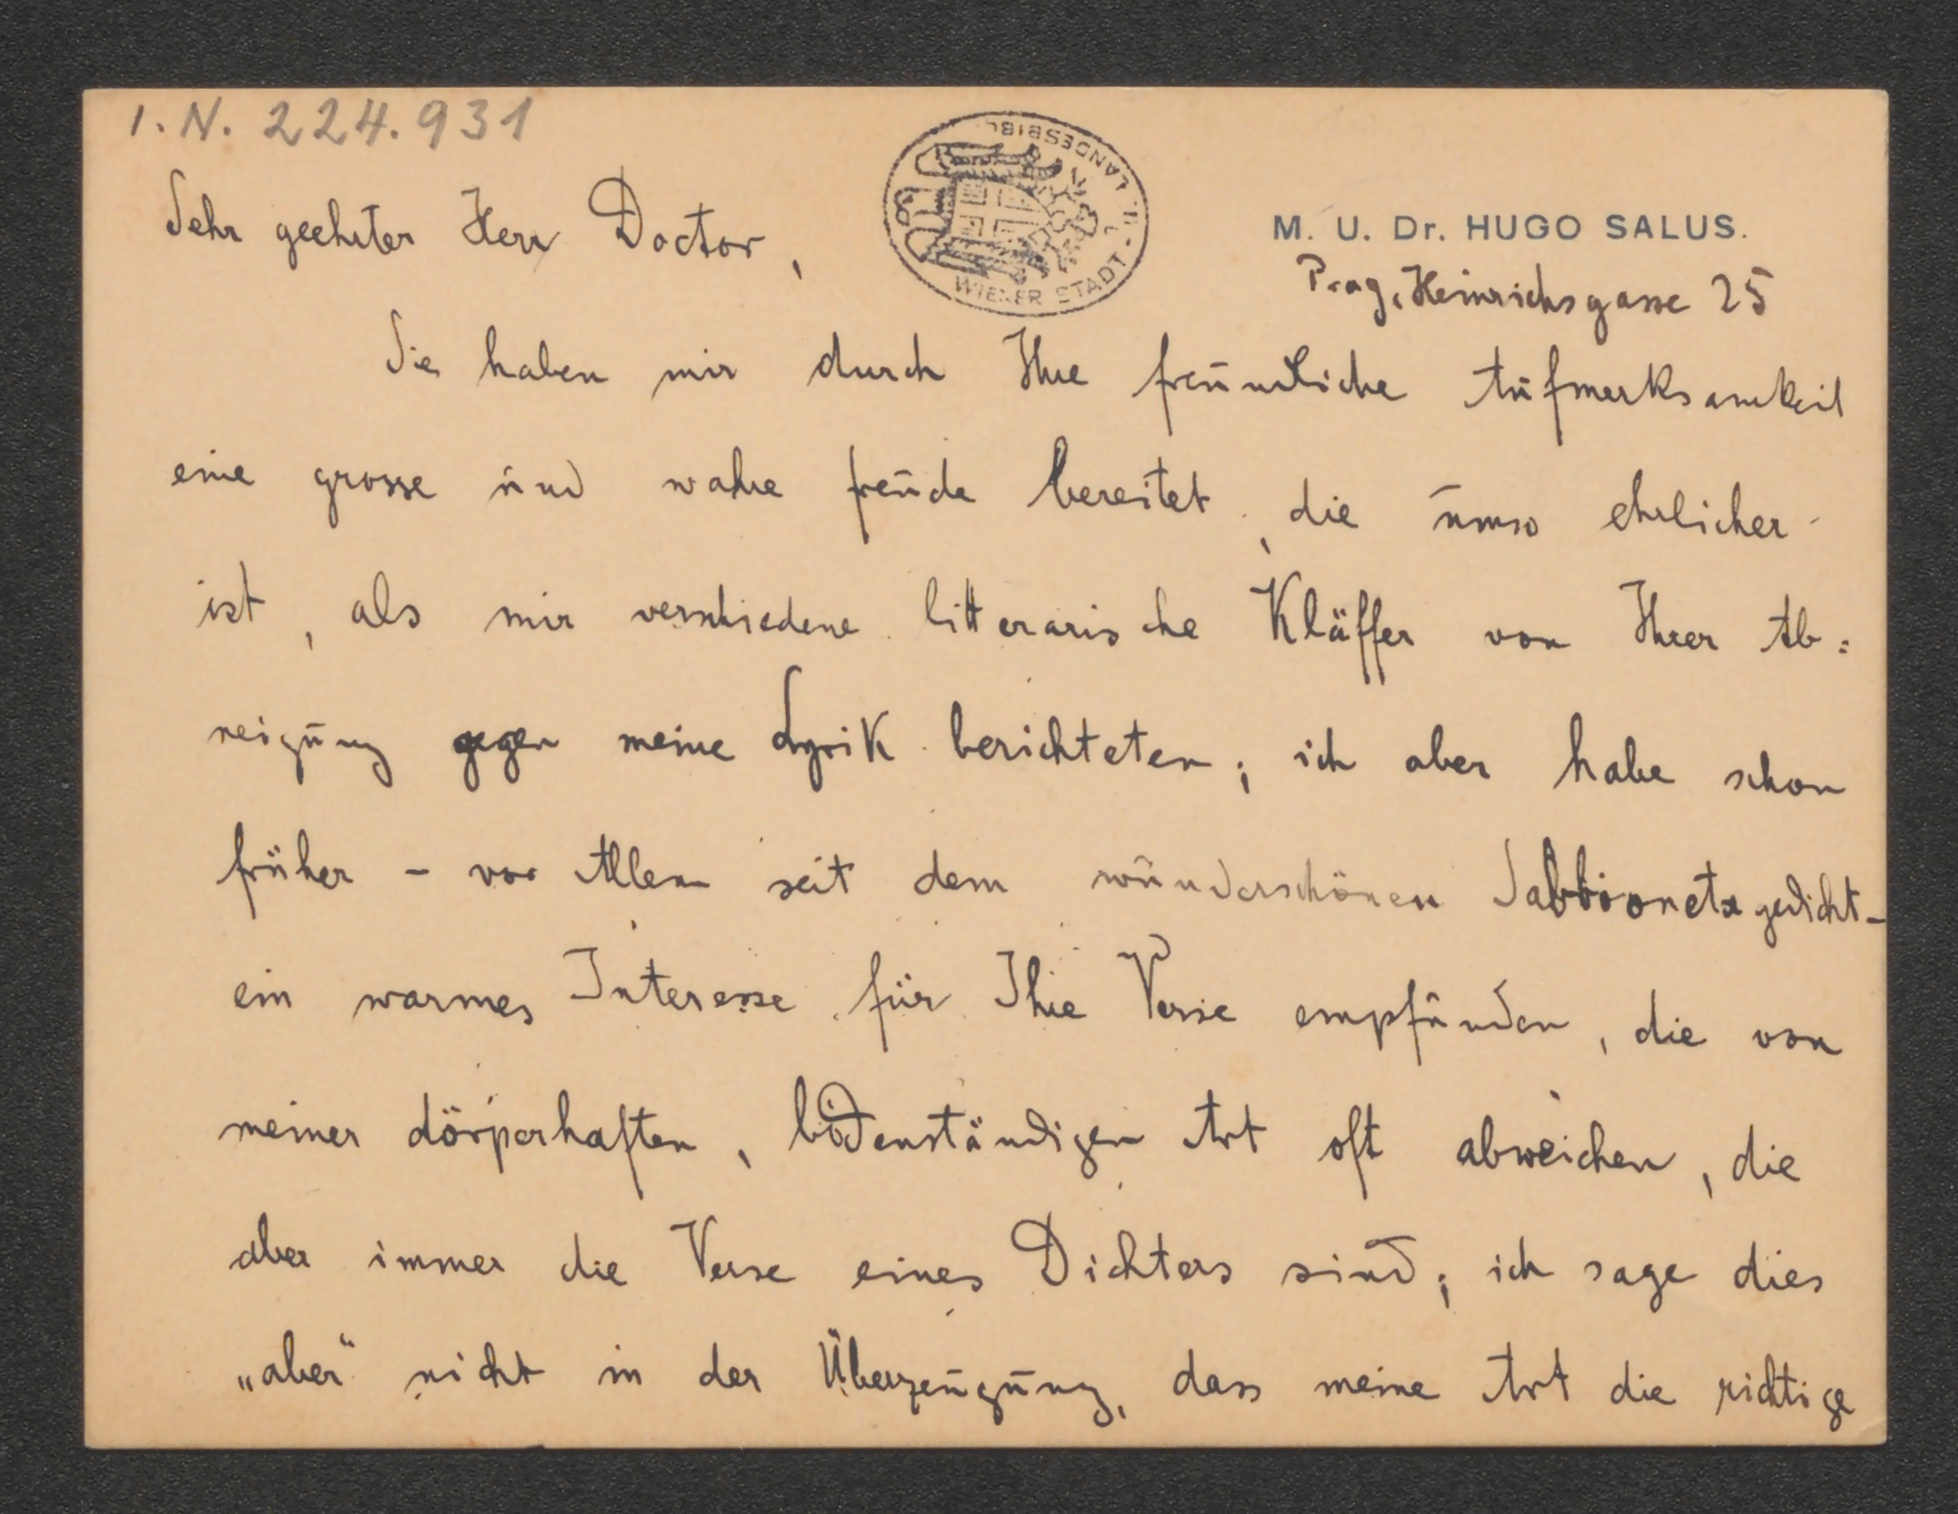 I. N. 224.931
WIENER STADT- U. LANDESBIBL
M. U. Dr. HUGO SALUS.
Prag, Heinrichsgasse 25
Sehr geehrter Herr Doctor,
Sie haben mir durch Ihre freundliche Aufmerksamkeit
eine grosse und wahre Freude bereitet, die umso ehrlicher
ist, als mir verschiedene litterarische Kläffer von Ihrer Ab=
neigung gegen meine Lyrik berichteten; ich aber habe schon
früher - vor Allem seit dem wunderschönen Sabbionetagedicht-
ein warmes Interesse für Ihre Verse empfunden, die von
meiner dörperhaften, bodenständigen Art oft abweichen, die
aber immer die Verse eines Dichters sind; ich sage dies
„aber“ nicht in der Überzeugung, dass meine Art die richtige